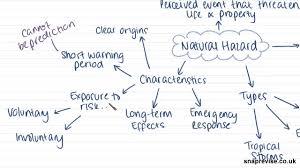 Perceived event that threaten
life & property
Cannot
be prediction
Clear origins
Natural Hazard
Short warning
period
Characteristics
Exposure to
risk...
Types
Voluntary
Long-term
Effects
Emergency
Response
Involuntary
Tropical
Storms
snaprevise.co.uk